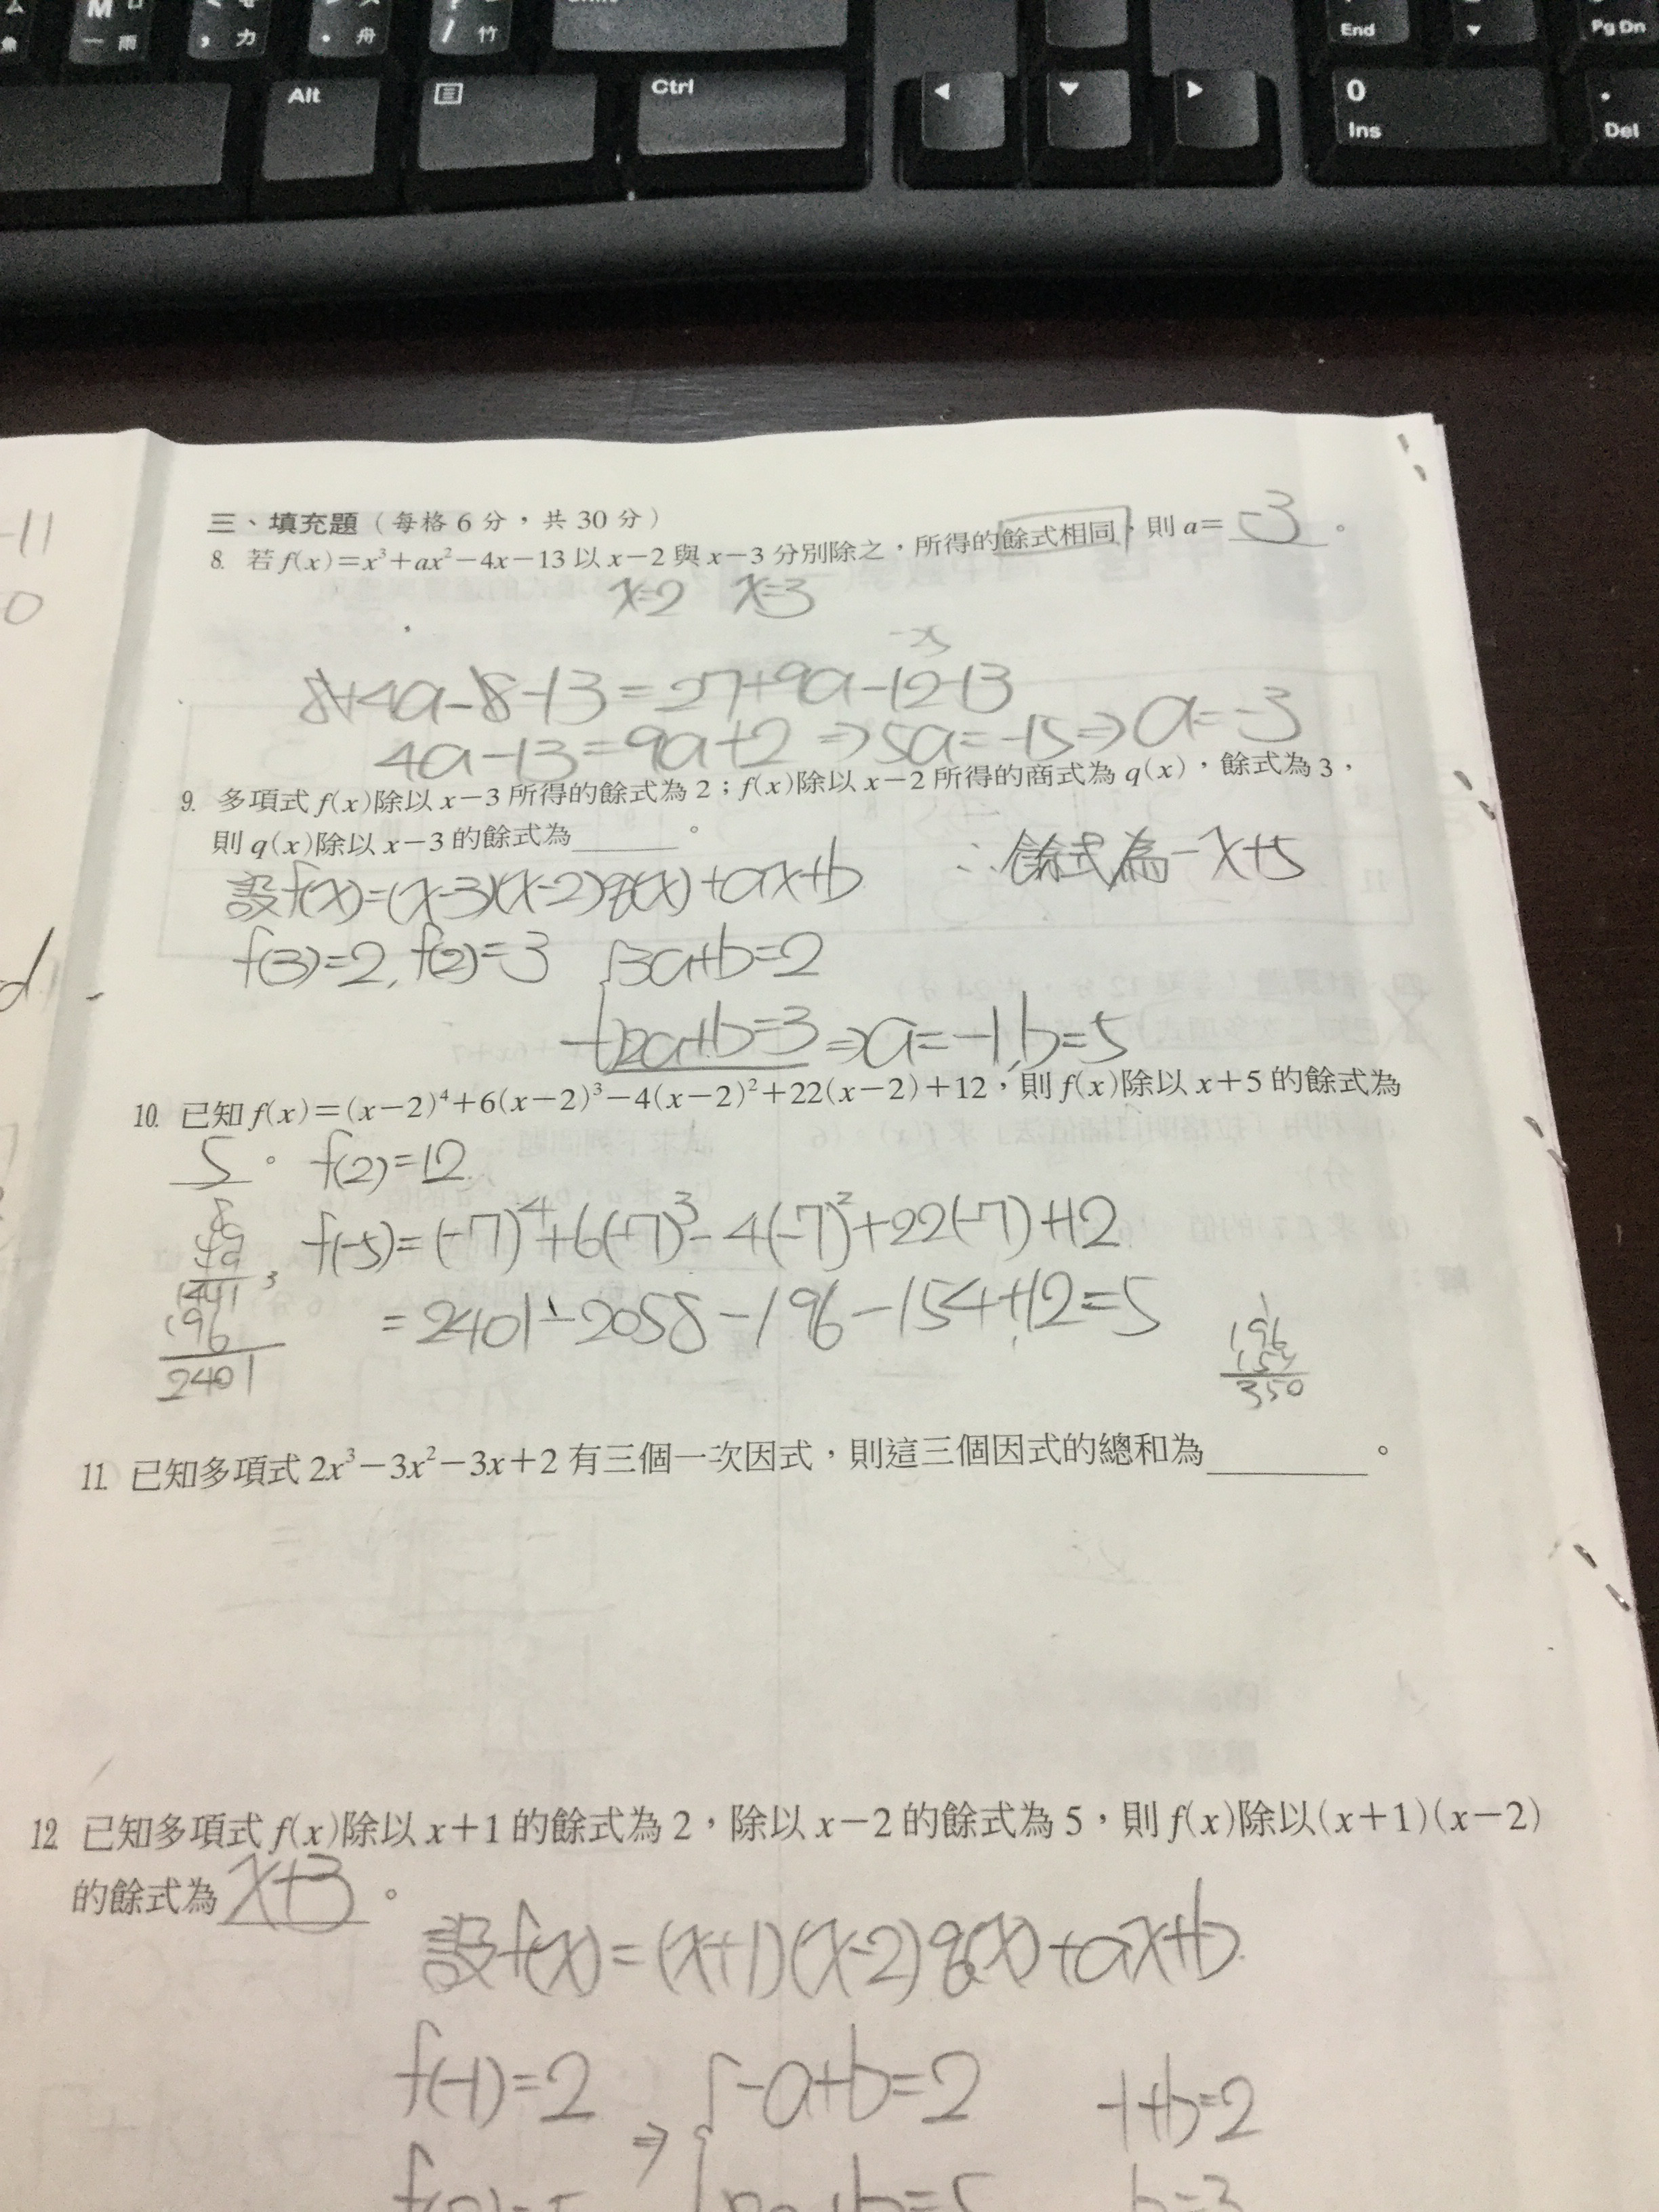 M
一 雨
力
舟
/ 竹
Alt
Ctrl
End
Pg Dn
0
Ins
.
Del
-11
0
三、填充題(每格6分,共30分)
8. 若 f(x)=x³+ax²-4x-13 以 x-2 與 x-3 分別除之,所得的餘式相同,則 a= -3 。
x=2 x=3
8+4a-8-13=27+9a-12-13
4a-13=9a+2 ⇒5a=-15⇒a=-3
9. 多項式 f(x)除以 x-3 所得的餘式為 2;f(x)除以 x-2 所得的商式為 q(x),餘式為 3,
則 q(x)除以 x-3 的餘式為______。
∴餘式為-x+5
設f(x)=(x-3)(x-2)q(x)+ax+b
f(3)=2, f(2)=3 { 3a+b=2
-) 2a+b=3 ⇒a=-1, b=5
10. 已知 f(x)=(x-2)⁴+6(x-2)³-4(x-2)²+22(x-2)+12,則 f(x)除以 x+5 的餘式為
5 。 f(2)=12
f(-5)=(-7)⁴+6(-7)³-4(-7)²+22(-7)+12
=2401-2058-196-154+12=5
49
441
196
2401
196
154
350
11. 已知多項式 2x³-3x²-3x+2 有三個一次因式,則這三個因式的總和為________。
12. 已知多項式 f(x)除以 x+1 的餘式為 2,除以 x-2 的餘式為 5,則 f(x)除以(x+1)(x-2)
的餘式為 x+3 。
設f(x)=(x+1)(x-2)q(x)+ax+b
f(-1)=2 ⇒ { -a+b=2 -1+b=2
b=3